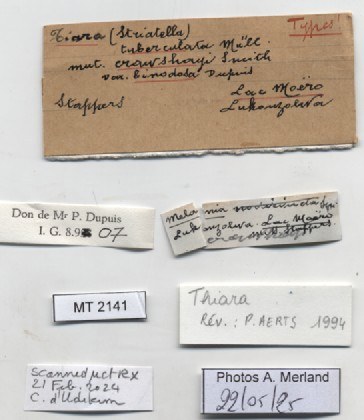 Tiara (Striatella) Types
tuberculata Müll.
mut. crawshayi Smith
var. binodosa Dupuis
Stappers Lac Moëro
Lukonzolwa
Don de Mr P. Dupuis
I. G. 8.9 07
Melania nodicincta
Lukonzolwa. Lac Moëro
Stappers
MT 2141
Thiara
Rév. : P. AERTS 1994
Scanned µctRX
21 Feb. 2024
C. d'Udekem
Photos A. Merland
22/05/25